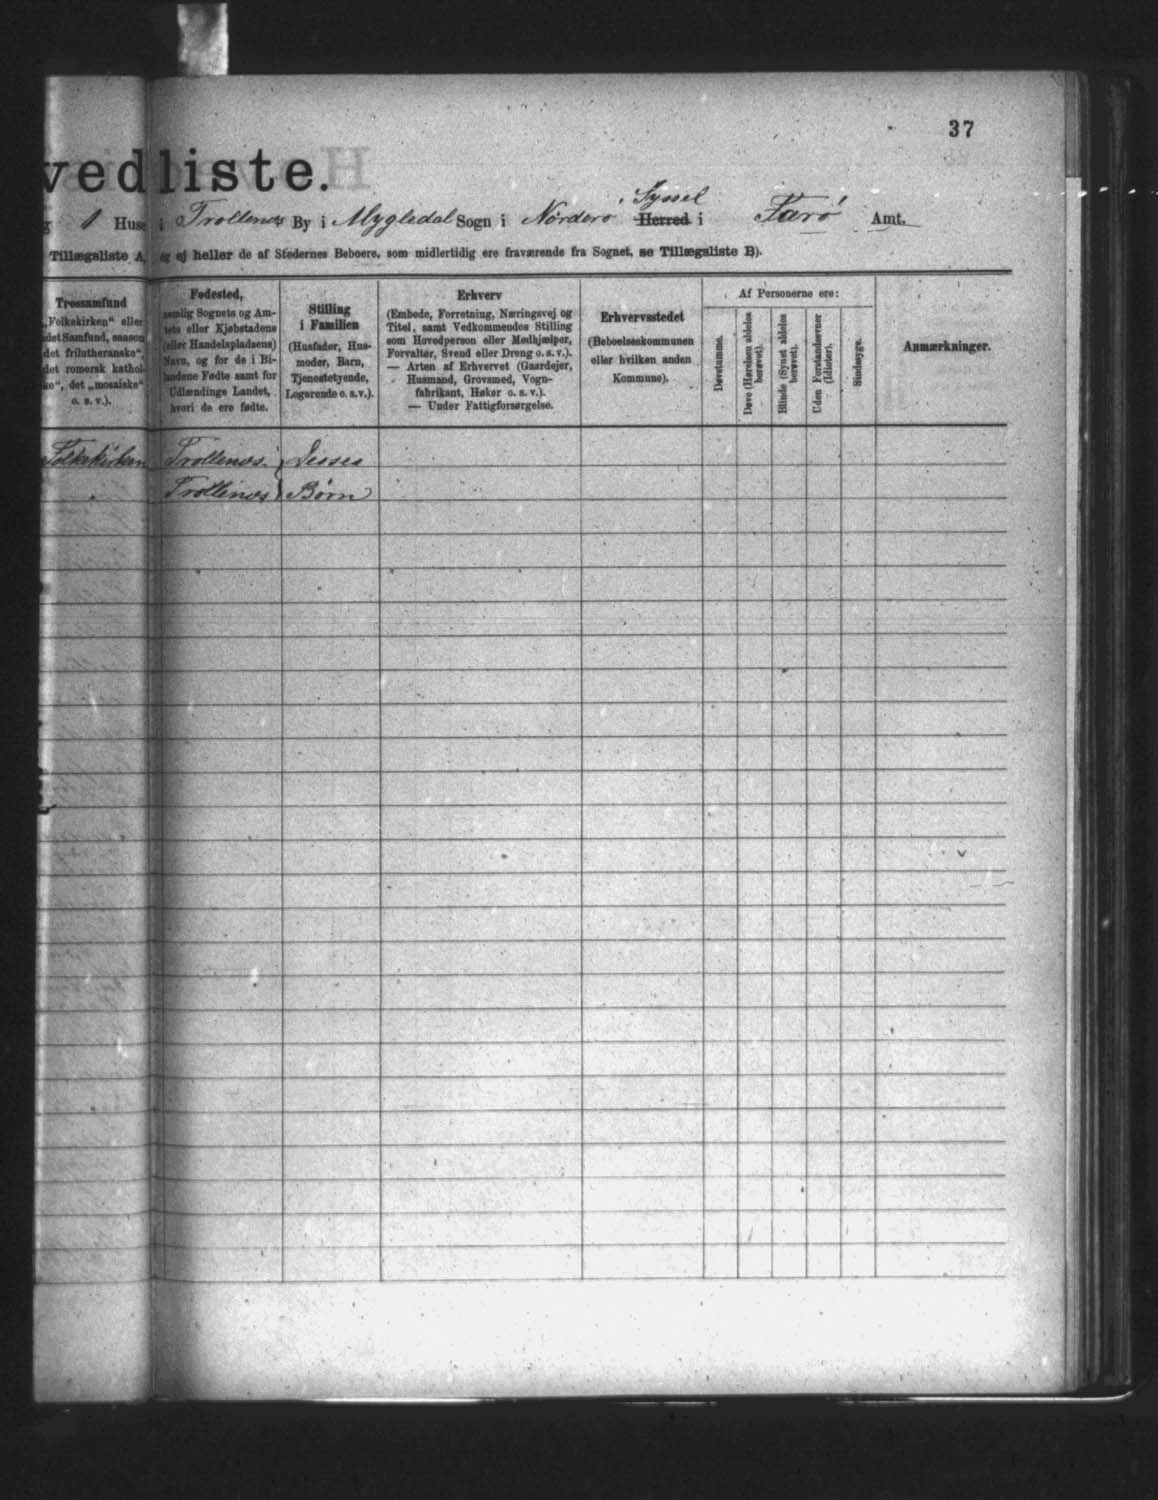 37
vedliste.
1 Huse i Trollenæs By i Mygledal Sogn i Norderø Syssel Herred i Færø Amt.
Tillægsliste A, og ej heller de af Stedernes Beboere, som midlertidig ere fraværende fra Sognet, se Tillægsliste B).
Trossamfund
„Folkekirken“ eller
det Samfund, saasom
det frilutheranske“,
det romersk kathol-
ke“, det „mosaiske“
o. s. v.).
Fødested,
nemlig Sognets og Am-
tets eller Kjøbstadens
(eller Handelspladsens)
Navn, og for de i Bi-
landene Fødte samt for
Udlændinge Landet,
hvori de ere fødte.
Stilling
i Familien
(Husfader, Hus-
moder, Barn,
Tjenestetyende,
Logerende o. s. v.).
Erhverv
(Embede, Forretning, Næringsvej og
Titel, samt Vedkommendes Stilling
som Hovedperson eller Medhjælper,
Forvalter, Svend eller Dreng o. s. v.).
— Arten af Erhvervet (Gaardejer,
Husmand, Grovsmed, Vogn-
fabrikant, Høker o. s. v.).
— Under Fattigforsørgelse.
Erhvervsstedet
(Beboelseskommunen
eller hvilken anden
Kommune).
Af Personerne ere:
Døvstumme.
Døve (Hørelsen aldeles
berøvet).
Blinde (Synet aldeles
berøvet).
Uden Forstandsevner
(Idioter).
Sindssyge.
Anmærkninger.
Folkekirken Trollenæs. Disses
Trollenæs Børn